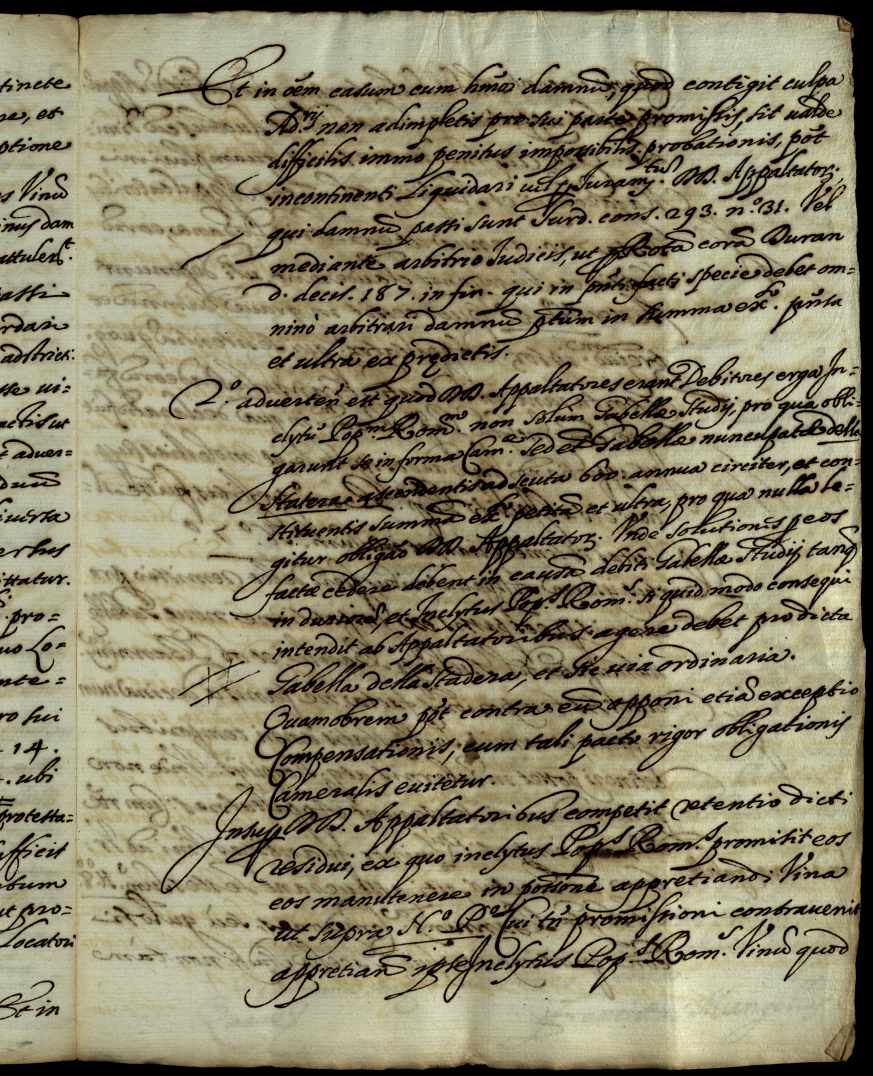 tinete
ne, et
ptione
Vinũ
inus dam
attulert.
passi
ordari
adstrict:
sse ui=
actis ut
t aduer=
duũ
iuerta
erbus
ittatur.
pro=
uo Lo=
nte=
ro sui
14.
. ubi
protesta=
ufficit
bum
ut pro=
Locatori
Et in
Et in oẽm casum cum hmõi damnũ, quod contigit culpa
Ad.rij non adimpletis pro sui parte promissis, sit ualde
difficilis immo penitus impossibilis probationis, põt
incontinenti Liquidari uel p Juramtũ. DD. Appaltator;
qui damnũ passi sunt Surd. cons. 293. n.º 31. Vel
mediante arbitrio Iudicis, ut p Rotã corã Duran
d. decis. 187. in fin. qui in pñti facti specie debet om=
nino arbitrari damnũ ptũm in summa exª. pñta
et ultra ex prędictis.
2.º aduertenẽ est quod DD. Appaltatores erant Debitores erga In=
clytũ Pop.m Rom.m non solum Gabellæ Studij, pro qua obli=
garunt se in forma Cam.e Sed et Gabellæ nuncupatæ della
Statera ascendentis ad scuta 600. annua circiter, et con=
stituentis summã exª petitã et ultra, pro qua nulla le=
gitur obligaõ DD. Appaltator. Vnde solutiones p eos
factæ cedere debent in causã debiti Gabellæ Studij tanq̃
in duriorẽ, et Inclytus Pop.s Rom.s si quid modo consequi
intendit ab Appaltatoribus agere debet pro dicta
Gabella della Stadera, et sic uia ordinaria.
Quamobrem põt contra eũ apponi etiã exceptio
Compensationis, cum tali pacto rigor obligationis
Cameralis euitetur.
Insup DD. Appaltatoribus competit retentio dicti
residui, ex quo inclytus Pop.s Rom.s promisit eos
eos manutenere in põssonẽ appretiandi Vina
ut supra N.º P.º Cui tñ promissioni contrauenit
appretiarĩ ipse Inclytus Pop.s Rom.s Vinũ quod